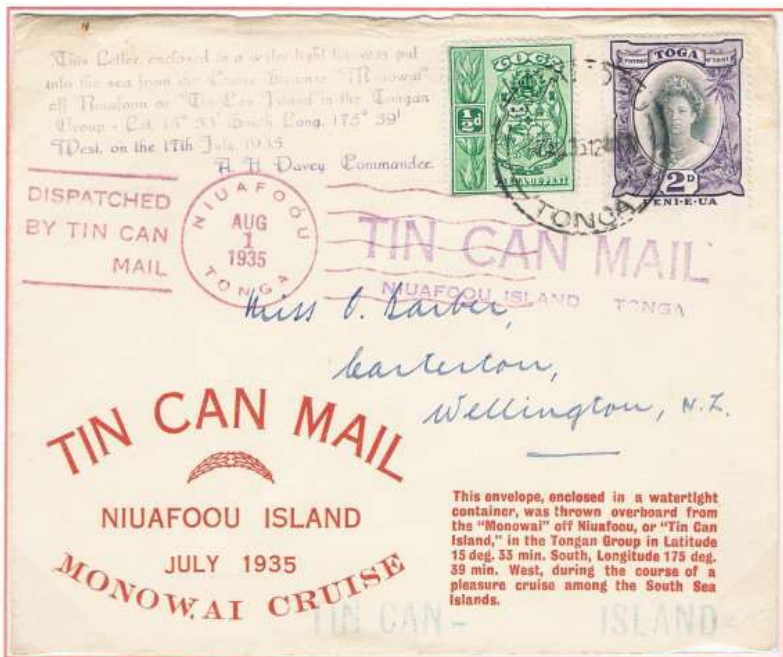 This Letter, enclosed in a watertight tin, was put
into the sea from the Cruise Steamer "Monowai"
off Niuafoou or "Tin Can Island in the Tongan
Group - Lat. 15° 33' South Long. 175° 39'
West, on the 17th July, 1935
A H Davey Commander.
TOGA
½d
TOGA
2D
PENI-E-UA
TONGA
DISPATCHED
BY TIN CAN
MAIL
NIUAFOÓU
AUG
1
1935
TONGA
TIN CAN MAIL
NIUAFOOU ISLAND TONGA
Miss O. Barber,
Carterton,
Wellington, N.Z.
TIN CAN MAIL
NIUAFOOU ISLAND
JULY 1935
MONOWAI CRUISE
This envelope, enclosed in a watertight
container, was thrown overboard from
the "Monowai" off Niuafoou, or "Tin Can
Island," in the Tongan Group in Latitude
15 deg. 33 min. South, Longitude 175 deg.
39 min. West, during the course of a
pleasure cruise among the South Sea
Islands.
TIN CAN - ISLAND